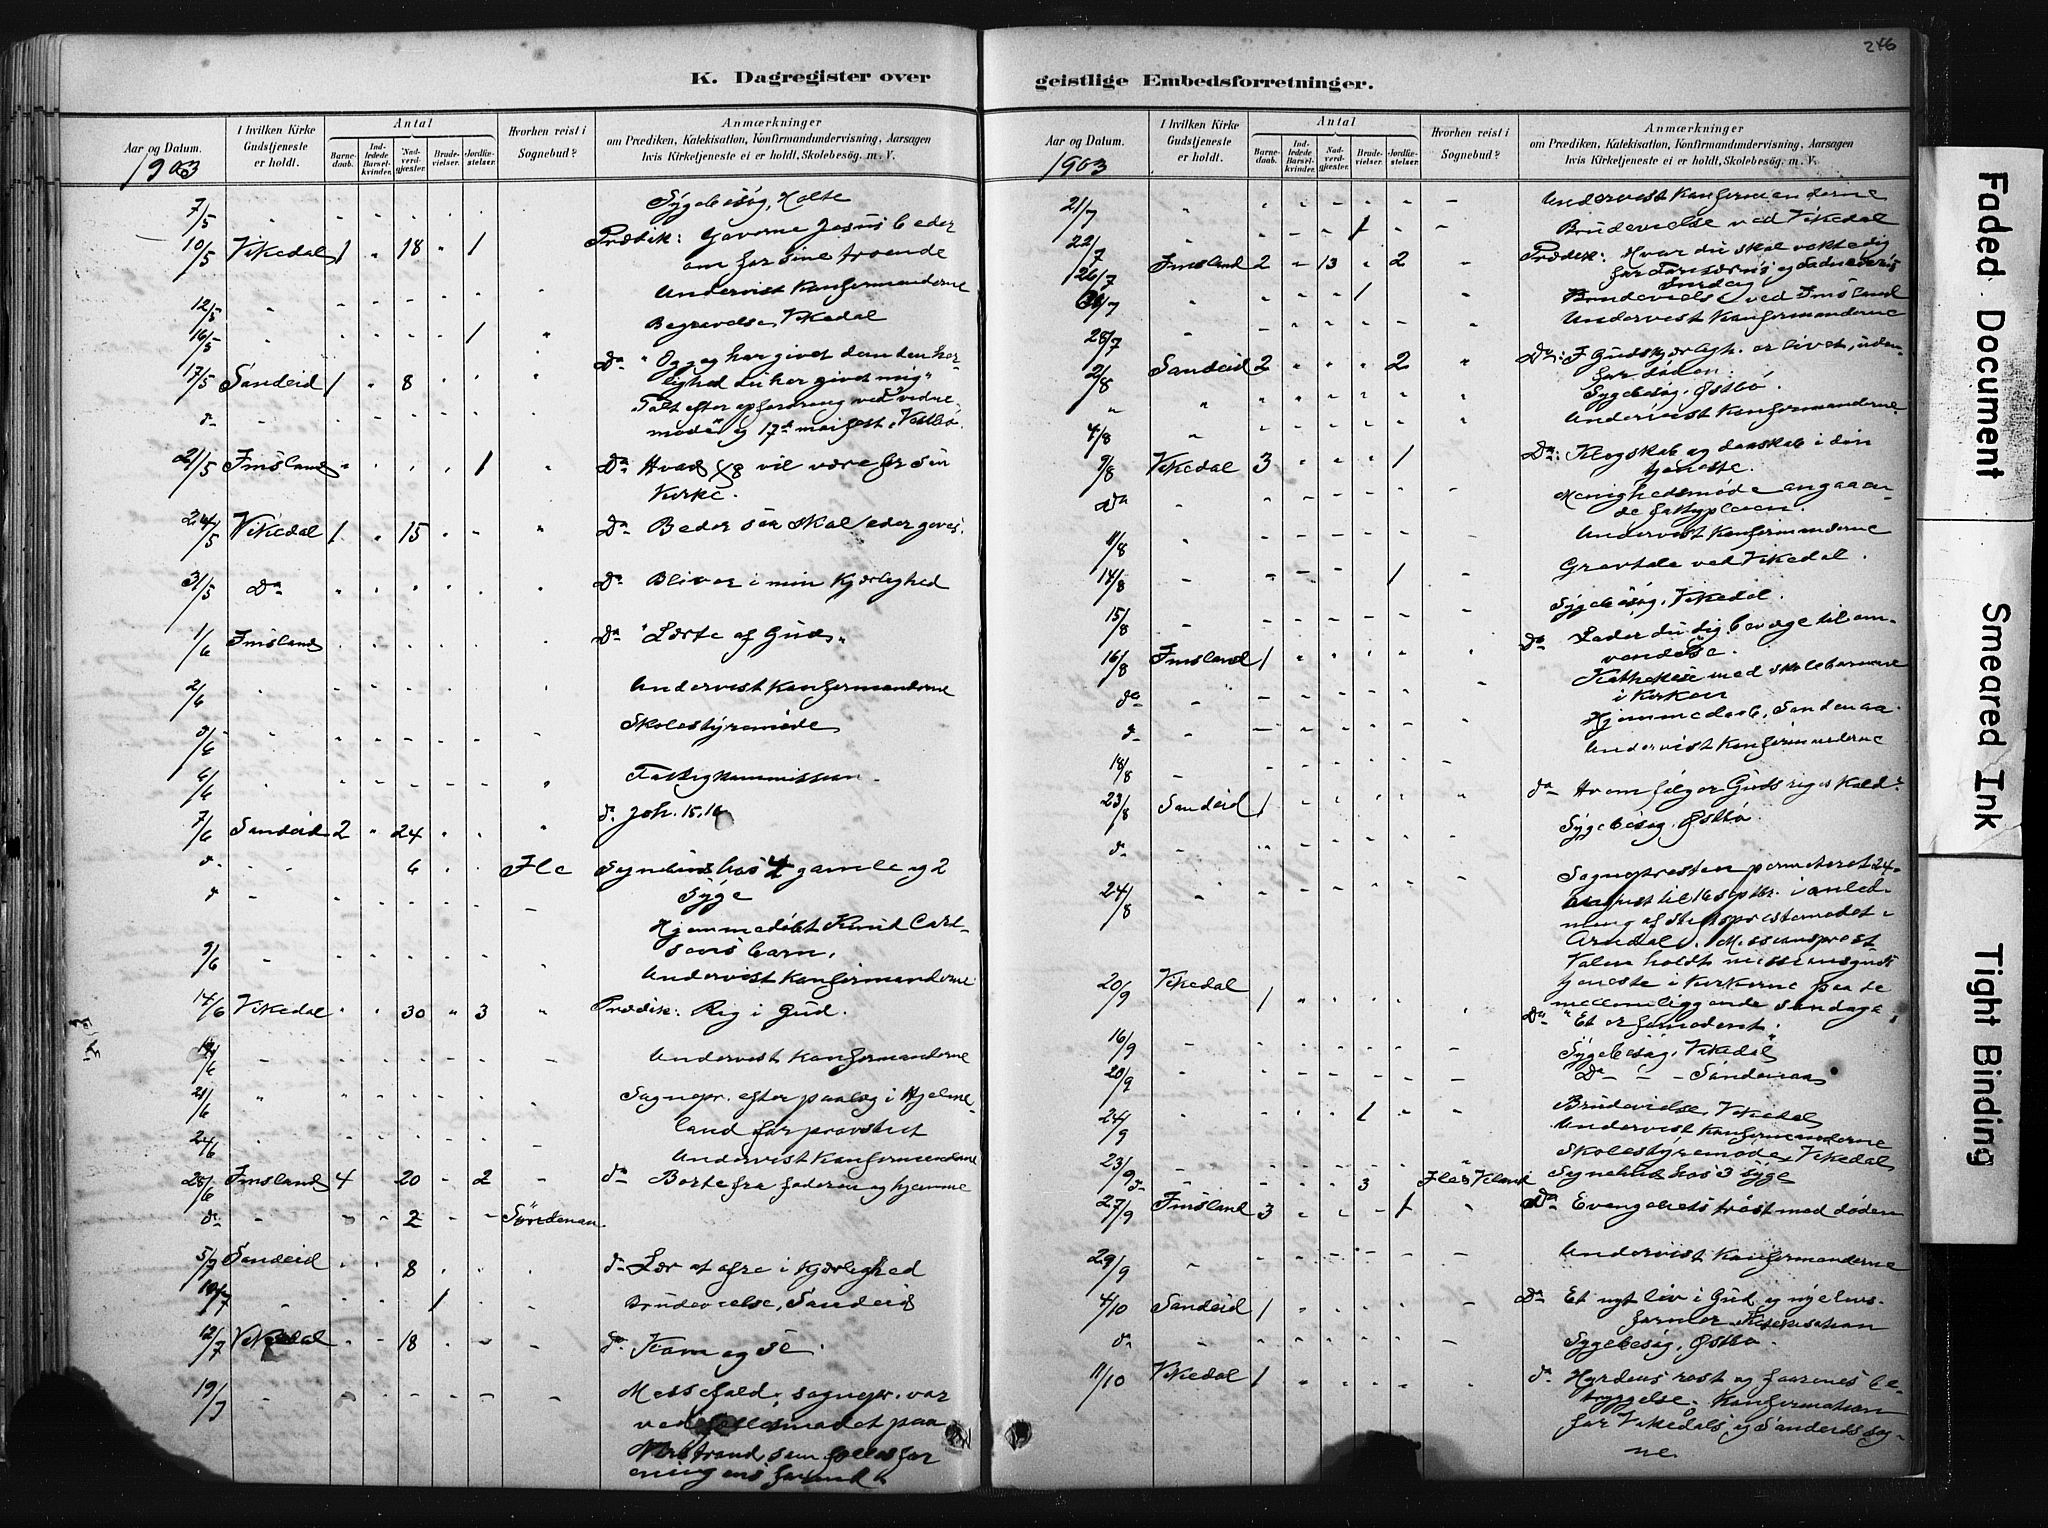 246
K. Dagregister over
Aar og Datum. I hvilken Kirke Gudstjeneste er holdt. Antal Barnedaab. Indledede Barselkvinder. Nadverdgjester. Brudevielser. Jordfæstelser. Hvorhen reist i Sognebud? Anmærkninger om Prædiken, Katekisation, Konfirmandundervisning, Aarsagen hvis Kirketjeneste ei er holdt, Skolebesög. m. V.
1903
7/5 Sygebesøg, Holte
10/5 Vikedal 1 18 1 Prædik: Jesus beder
om for sine troende
12/5 Undervist Konfirmanderne
16/5 1 Begravelse Vikedal
17/5 Sandeid 1 8 Do "Og jeg har givet dem den her-
lighed du har givet mig"
Talt efter opfordring ved
møde og 17de maifest, Vestbø.
21/5 Imsland 1 Do Hvad vil være for sin
Kirke.
24/5 Vikedal 1 15 Do Beder saa skal eder gives.
31/5 Do Do Bliver i min Kjærlighed
1/6 Imsland Do "Lærte af Gud"
2/6 Undervist Konfirmanderne
3/6 Skolestyremøde
6/6 Fattigkommission
7/6 Sandeid 2 24 do Joh. 15.16
do 6 Ile Sognebud hos 4 gamle og 2
Syge
Hjemmedøbt Knud Carl-
sens barn.
9/6 Undervist Konfirmanderne
14/6 Vikedal 30 3 Prædik: Rig i Gud.
Undervist Konfirmanderne
21/6 Sognepr. efter paalæg i Hjelme-
land for provstiet
24/6 Undervist Konfirmanderne
28/6 Imsland 4 20 2 do Borte fra faderen og hjemme
do 2 Søndenaa
5/7 Sandeid 8 do Lær at ofre i Kjærlighed
1 Brudevielse, Sandeid
12/7 Vikedal 18 do Kom og se.
19/7 Messefald, sognepr. var
paa
geistlige Embedsforretninger.
Aar og Datum. I hvilken Kirke Gudstjeneste er holdt. Antal Barnedaab. Indledede Barselkvinder. Nadverdgjester. Brudevielser. Jordfæstelser. Hvorhen reist i Sognebud? Anmærkninger om Prædiken, Katekisation, Konfirmandundervisning, Aarsagen hvis Kirketjeneste ei er holdt, Skolebesög. m. V.
1903
21/7 Undervist Konfirmanderne
22/7 1 Brudevielse ved Vikedal
26/7 Imsland 2 13 2 Prædik: Hvor du skal vokte dig
for Farisæernes og Sadducæernes
Surdeig
1 Brudevielse ved Imsland
28/7 Undervist Konfirmanderne
2/8 Sandeid 2 2 Do: I Guds kjærligh. er livet, uden-
for døden.
Sygebesøg, Østbø
4/8 Undervist Konfirmanderne
9/8 Vikedal 3 1 Do: Klogskab og daarskab i din
tjeneste.
do Menighedsmøde angaaen-
de fattigpleien.
11/8 Undervist Konfirmanderne
14/8 1 Gravtale ved Vikedal.
15/8 Sygebesøg, Vikedal.
16/8 Imsland 1 Do Lader du dig bevæge til om-
vendelse.
do Kathekese med skolebarnene
i Kirken
do Hjemmedaab, Søndenaa
18/8 Undervist Konfirmanderne
23/8 Sandeid 1 do Hvem følger Guds riges Kald?
do Sygebesøg, Østbø
24/8 Sognepresten permiteret 24.
august til 16 septbr. i anled-
ning af stiftsprestemødet i
Arendal. Missionsprest
Valen holdt missionsguds
tjeneste i Kirkerne paa de
mellemliggende søndage
20/9 Vikedal 1 Do "Et er fornødent"
16/9 Sygebesøg, Vikedal
20/9 Do - - - Søndenaa
24/9 1 Brudevielse, Vikedal
Undervist Konfirmanderne
23/9 Skolestyremøde, Vikedal
do 3 Sognebud hos 3 syge
27/9 Imsland 3 1 Do Evangeliets trøst mod døden
29/9 Undervist Konfirmanderne
4/10 Sandeid 1 Do Et nyt liv i Gud og nye livs-
former. Katekisation
do Sygebesøg, Østbø.
11/10 Vikedal 1 do Hyrdens røst og faarenes be-
tryggelse. Konfirmation
for Vikedals og Sandeids sog-
ne
Faded Document
Smeared Ink
Tight Binding